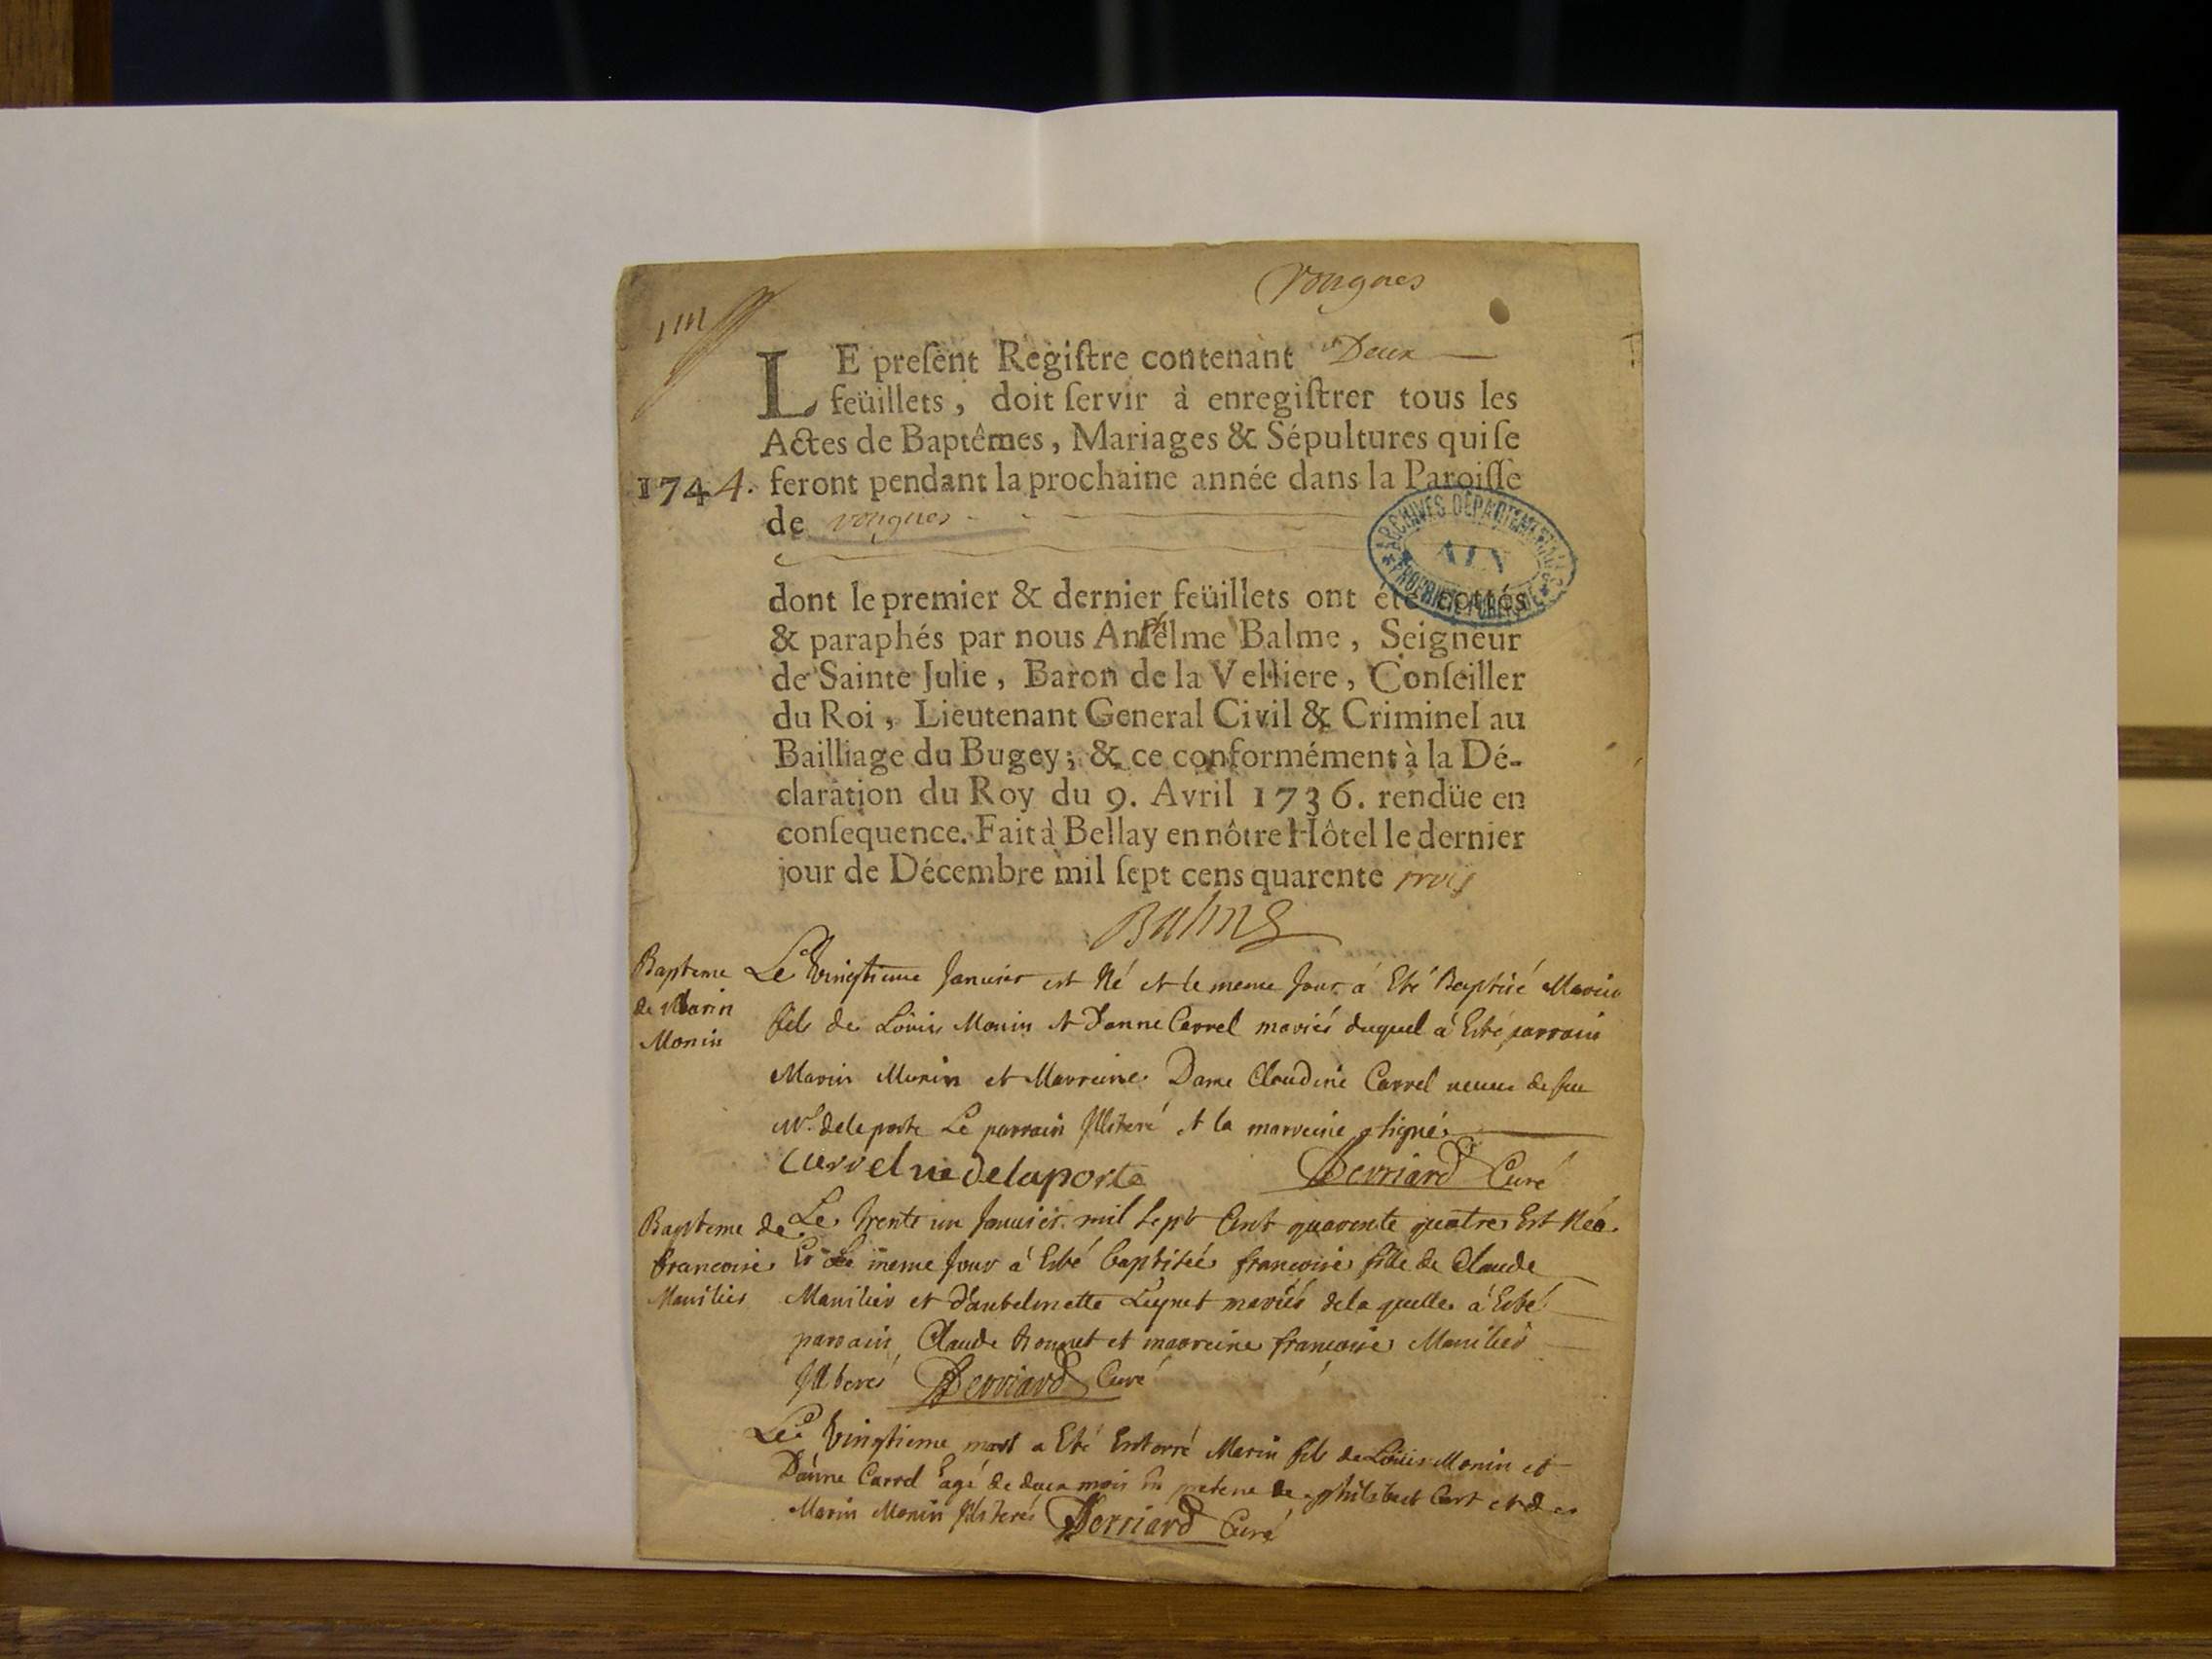 Vongnes
LE preſent Regiſtre contenant Deux
feüillets, doit ſervir à enregiſtrer tous les
Actes de Baptêmes, Mariages & Sépultures qui ſe
1744. feront pendant la prochaine année dans la Paroiſſe
de vongnes
ARCHIVES DEPARTEMENTALES
AIN
PROPRIETE PUBLIQUE
dont le premier & dernier feüillets ont été cottés
& paraphés par nous Anſelme Balme, Seigneur
de Sainte Julie, Baron de la Velliere, Conſeiller
du Roi, Lieutenant General Civil & Criminel au
Bailliage du Bugey; & ce conformément à la Dé-
claration du Roy du 9. Avril 1736. rendüe en
conſequence. Fait à Bellay en nôtre Hôtel le dernier
jour de Décembre mil ſept cens quarente trois
Balme
Bapteme
de Marin
Monin
Le vingtieme Janvier est Né et le meme Jour á Eté Baptisé Marin
fils de Loüis Monin et d'anne Carrel mariés duquel á Esté parrain
Marin Monin et Marreine Dame Claudine Carrel veuve de feu
Mr. delaporte Le parrain Illiteré et la marreine signé
Carrel ve delaporte Derriard Curé
Bapteme de
francoise
Manilier
Le trente un Janvier mil sept Cent quarente quatre Est Née
Et le meme Jour á Esté baptisée francoise fille de Claude
Manilier et d'antelmette Leynet mariés de la quelle á Esté
parrain Claude Bonnet et marreine francoise Manilier
Illiterés Derriard Curé
Le vingtieme mars a Eté Enterré Marin fils de Loüis Monin et
D'anne Carrel agé de deux mois En presence de philibert Cart et de
Marin Monin Illiterés Derriard Curé